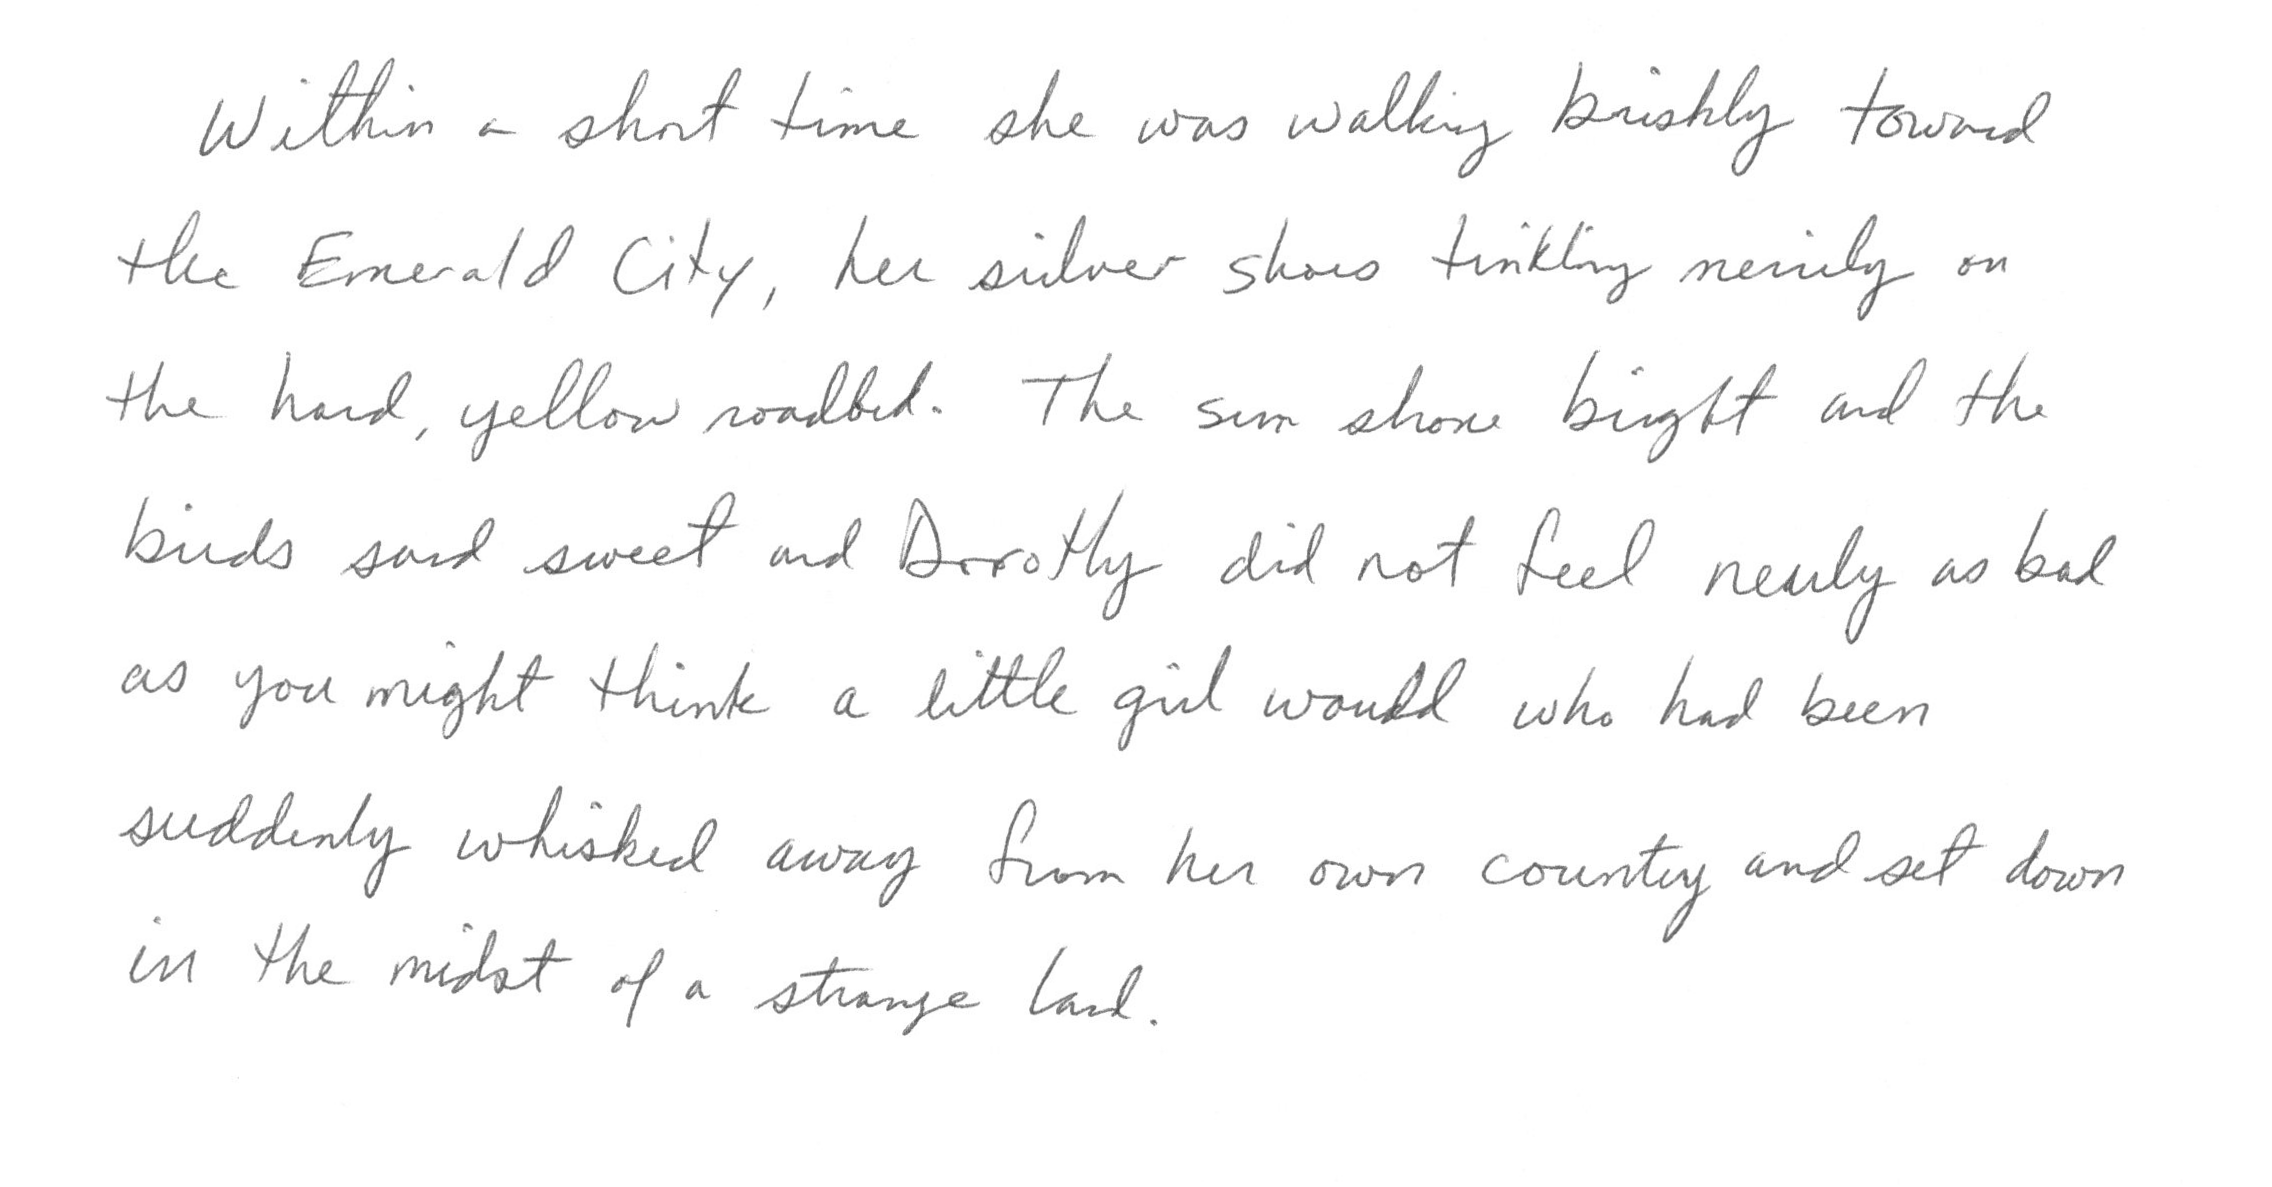 Within a short time she was walking briskly toward
the Emerald City, her silver shoes tinkling merrily on
the hard, yellow roadbed. The sun shone bright and the
birds sand sweet and Dorothy did not feel nearly as bad
as you might think a little girl would who had been
suddenly whisked away from her own country and set down
in the midst of a strange land.